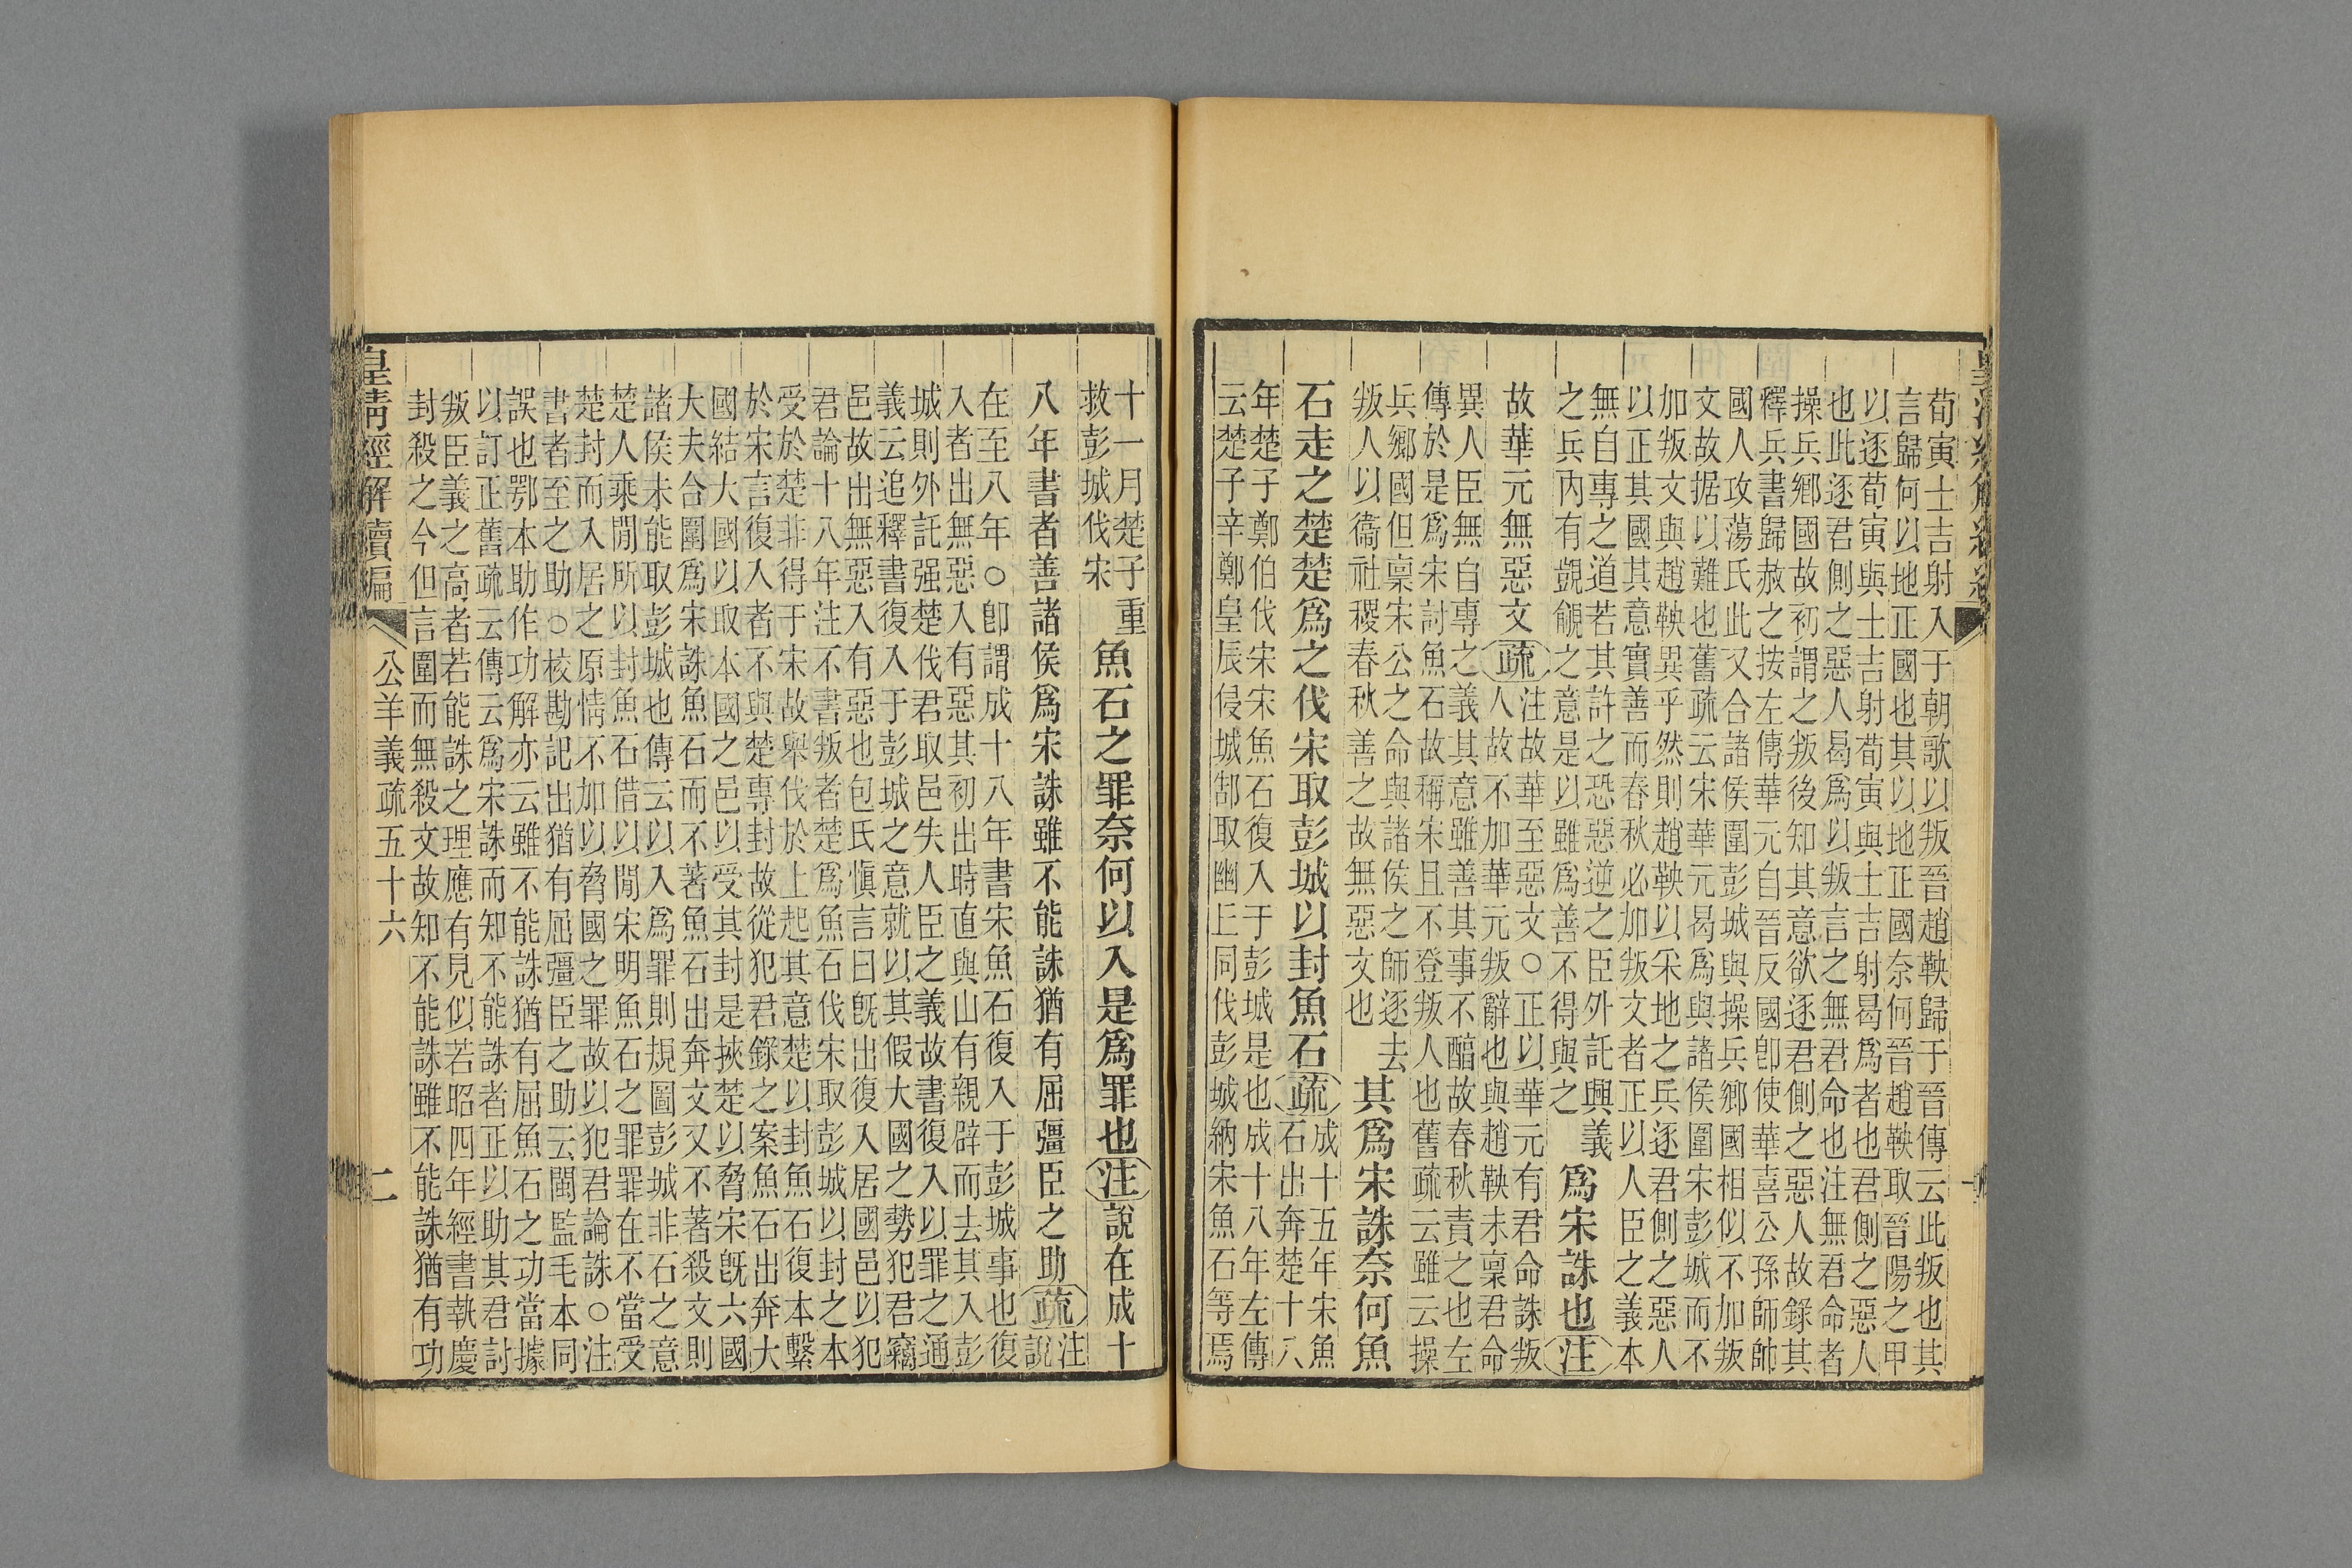 荀寅士吉射入于朝歌以叛晉趙鞅歸于晉傳云此叛也其
言歸何以地正國也其以地正國奈何晉趙鞅取晉陽之甲
以逐荀寅與士吉射荀寅與士吉射曷爲者也君側之惡人
也此逐君側之惡人曷爲以叛言之無君命也注無君命者
操兵鄉國故初謂之叛後知其意欲逐君側之惡人故錄其
釋兵書歸赦之按左傳華元自晉反國卽使華喜公孫師帥
國人攻蕩氏此又合諸侯圍彭城與操兵鄉國相似不加叛
文故据以難也舊疏云宋華元曷爲與諸侯圍宋彭城而不
加叛文與趙鞅異乎然則趙鞅以采地之兵逐君側之惡人
以正其國其意實善而春秋必加叛文者正以人臣之義本
無自專之道若其許之恐惡逆之臣外託興義
之兵內有覬覦之意是以雖爲善不得與之
爲宋誅也注
故華元無惡文疏
注故華至惡文○正以華元有君命誅叛
人故不加華元叛辭也與趙鞅未稟君命
異人臣無自專之義其意雖善其事不醕故春秋責之也左
傳於是爲宋討魚石故稱宋且不登叛人也舊疏云雖云操
兵鄉國但稟宋公之命與諸侯之師逐去
叛人以衞社稷春秋善之故無惡文也
其爲宋誅奈何魚
石走之楚楚爲之伐宋取彭城以封魚石疏
成十五年宋魚
石出奔楚十八
年楚子鄭伯伐宋宋魚石復入于彭城是也成十八年左傳
云楚子辛鄭皇辰侵城郜取幽丘同伐彭城納宋魚石等焉
十一月楚子重
救彭城伐宋
魚石之罪奈何以入是爲罪也注說在成十
八年書者善諸侯爲宋誅雖不能誅猶有屈彊臣之助疏
注
說
在至八年○卽謂成十八年書宋魚石復入于彭城事也復
入者出無惡入有惡其初出時直與山有親辟而去其入彭
城則外託强楚伐君取邑失人臣之義故書復入以罪之通
義云追釋書復入于彭城之意就以其假大國之勢犯君竊
邑故出無惡入有惡也包氏愼言曰旣出復入居國邑以犯
君論十八年注不書叛者楚爲魚石伐宋取彭城以封之本
受於楚非得于宋故舉伐於上起其意楚以封魚石復本繫
於宋言復入者不與楚專封故從犯君錄之案魚石出奔大
國結大國以取本國之邑以受其封是挾楚以脅宋旣六國
大夫合圍爲宋誅魚石而不著魚石出奔文又不著殺文則
諸侯未能取彭城也傳云以入爲罪則規圖彭城非石之意
楚人乘閒所以封魚石借以閒宋明魚石之罪罪在不當受
楚封而入居之原情不加以脅國之罪故以犯君論誅○注
書者至之助○校勘記出猶有屈彊臣之助云閩監毛本同
誤也鄂本助作功解亦云雖不能誅猶有屈魚石之功當據
以訂正舊疏云傳云爲宋誅而知不能誅者正以助其君討
叛臣義之高者若能誅之理應有見似若昭四年經書執慶
封殺之今但言圍而無殺文故知不能誅雖不能誅猶有功
皇清經解續編
公羊義疏五十六
二